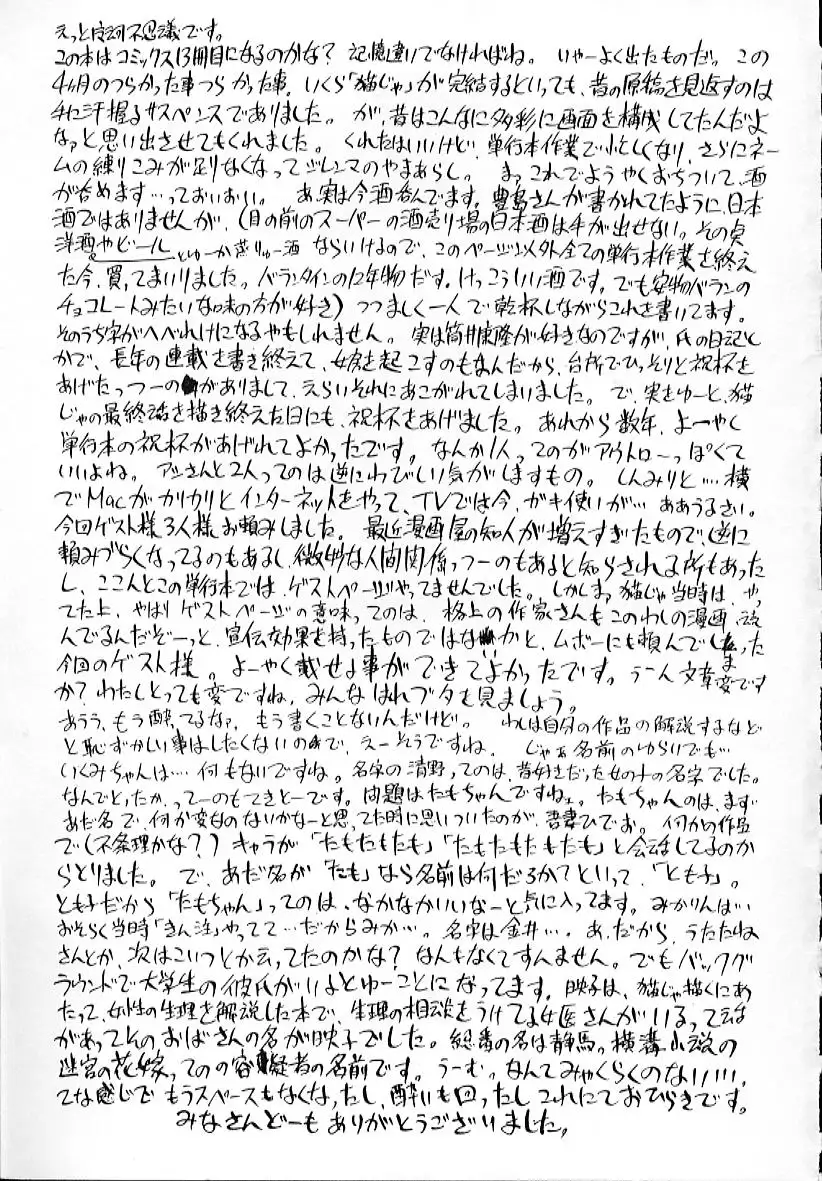 えっと守河不思議です。
この本はコミックス13冊目になるのかな? 記憶違いでなければね。 いやーよく出たものだ。 この
4ヶ月のつらかった事つらかった事。いくら「猫じゃ」が完結するといっても、昔の原稿を見返すのは
手に汗握るサスペンスでありました。 が、昔はこんなに多彩に画面を構成してたんだよ
なァと思い出させてもくれました。 くれたはいいけど、単行本作業で忙しくなり、さらにネー
ムの練りこみが足りなくなってジレンマのやまあらし。 まっこれでようやくおちついて、酒
が呑めます…っておいおい。 あ、実は今酒呑んでます。豊島さんが書かれてたように、日本
酒ではありませんが、(目の前のスーパーの酒売り場の日本酒は手が出せない。その点
洋酒やビールとゆーか蒸りゅー酒ならいけるので、このページ以外全ての単行本作業を終え
た今、買ってまいりました。バランタインの12年物だす。けっこういい酒です。でも安物バランの
チョコレートみたいな味の方が好き) つつましく一人で乾杯しながらこれを書いてます。
そのうち字がへべれけになるやもしれません。 実は筒井康隆が好きなのですが、氏の日記と
かで、長年の連載を書き終えて、女房を起こすのもなんだから、台所でひっそりと祝杯を
あげたっつーのがありまして、えらいそれにあこがれてしまいました。 で、実をゆーと、猫
じゃの最終話を描き終えた日にも、祝杯をあげました。 あれから数年、よーやく
単行本の祝杯があげれてよかったです。 なんか1人ってのがアウトローっぽくて
いいよね。 アシさんと2人ってのは逆にわびしい気がしますもの。 しんみりと… 横
でMacがカリカリとインターネットをやって、TVでは今、ガキ使いが… ああうるさい。
今回ゲスト様3人様お頼みしました。 最近漫画屋の知人が増えすぎたもので、逆に
頼みづらくなってるのもあるし、微妙な人間関係っつーのもあると知らされる所もあった
し、ここんとこの単行本では、ゲストページやってませんでした。しかしまっ猫じゃ当時は、やっ
てた上、やはりゲストページの意味ってのは、格上の作家さんもこのわしの漫画、読
んでるんだぞーっと、宣伝効果を持ったものではなかかと、ムボーにも頼んでしまった
今回のゲスト様。 よーやく載せる事ができてよかったです。 うーん文章変です
か? わたしとっても変ですね。みんなはれブタを見ましょう。
あうう、もう酔ってるなァ、もう書くことないんだけど。 わしは自分の作品の解説するなど
と恥ずかしい事はしたくないので、えーそうですね。 じゃぁ名前のゆらいでも…
いくみちゃんは… 何もないですね。名字の清野ってのは、昔好きだった女の子の名字でした。
なんでとったか、ってーのもてきとーです。問題はたもちゃんですねェ。たもちゃんのは、まず
あだ名で、何か変なのないかなーと思ってた時に思いついたのが、吾妻ひでお。 何かの作品
で(不条理かな?) キャラが「たもたもたも」「たもたもたもたも」と会話してるのか
らとりました。 で、あだ名が「たも」なら名前は何だろかてといって、「とも子」。
とも子だから「たもちゃん」ってのは、なかなかいいなーと気に入ってます。みかりんは…
おそらく当時「きん注」やってて…だからみか…。名字は金井…。あ、だから、うたたね
さんとか、次はこいつとか云ってたのかな? なんもなくてすんません。でもバックグ
ラウンドで大学生の彼氏がいるとゆーことになってます。映子は、猫じゃ描くにあ
たって、女性の生理を解説した本で、生理の相談をうけてる女医さんがいるって話
があってそのおばさんの名が映子でした。総番の名は静馬っ。横溝小説の
迷宮の花嫁ってのの容疑者の名前です。 うーむっ。なんてみゃくらくのないい。
てな感じでもうスペースもなくなったし、酔いも回ったしこれにておひらきです。
みなさんどーもありがとうございました。